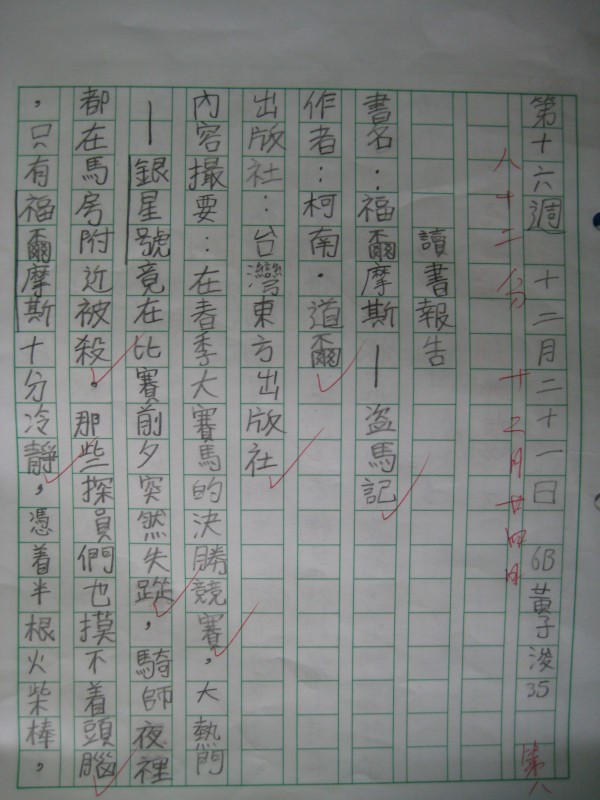 第十六週 十二月二十一日 6B 黃子浚 35
第八
八十二分 十二月廿四日
讀書報告
書名：福爾摩斯—盜馬記
作者：柯南·道爾
出版社：台灣東方出版社
內容撮要：在春季大賽馬的決勝競賽，大熱門
—銀星號竟在比賽前夕突然失蹤，騎師夜裡
都在馬房附近被殺。那些探員們也摸不着頭腦
，只有福爾摩斯十分冷靜，憑着半根火柴棒，